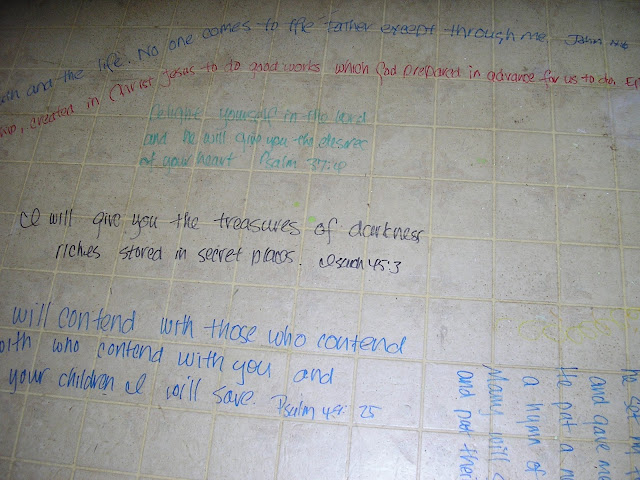 uth and the life. No one comes to the father except through me. John 14:6
hip, created in Christ Jesus to do good works which God prepared in advance for us to do. Ep
Delight yourself in the word
and he will give you the desires
of your heart Psalm 37:4
I will give you the treasures of darkness
riches stored in secret places. Isaiah 45:3
will contend with those who contend
with who contend with you and
your children I will save. Psalm 49: 25
he set my
and gave me
He put a n
a hymn of
Many will s
and put thei